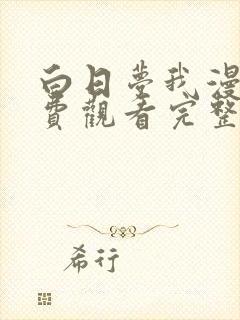 白日夢我漫
費觀看完整
希行